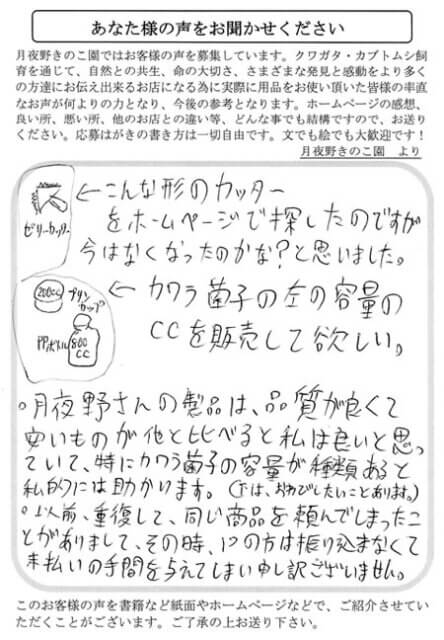 あなた様の声をお聞かせください
月夜野きのこ園ではお客様の声を募集しています。クワガタ・カブトムシ飼
育を通じて、自然との共生、命の大切さ、さまざまな発見と感動をより多く
の方達にお伝え出来るお店になる為に実際に用品をお使い頂いた皆様の率直
なお声が何よりの力となり、今後の参考となります。ホームページの感想、
良い所、悪い所、他のお店との違い等、どんな事でも結構ですので、お送り
ください。応募はがきの書き方は一切自由です。文でも絵でも大歓迎です！
月夜野きのこ園　より
ゼリーカッター
←こんな形のカッター
をホームページで探したのですが
今はなくなったのかな？と思いました。
200cc プリンカップ
PPボトル 800cc
← カワラ菌子の左の容量の
CCを販売して欲しい。
○月夜野さんの製品は、品質が良くて
安いものが他と比べると私は良いと思っ
ていて、特にカワラ菌子の容量が種類あると
私的には助かります。(では、おわびしたいことあります。)
○以前、重復して、同じ商品を頼んでしまったこ
とがありまして、その時、1つの方は振り込まなくて
未払いの手間を与えてしまい申し訳ございません。
このお客様の声を書籍など紙面やホームページなどで、ご紹介させてい
ただくことがございます。ご了承の上お送り下さい。